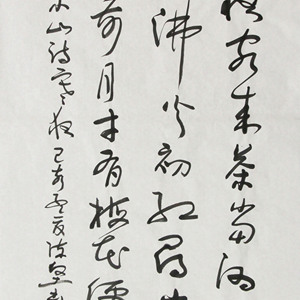 夜客来茶当酒
沸火初红寻
前月才有梅花便
小山诗寒夜己亥夏